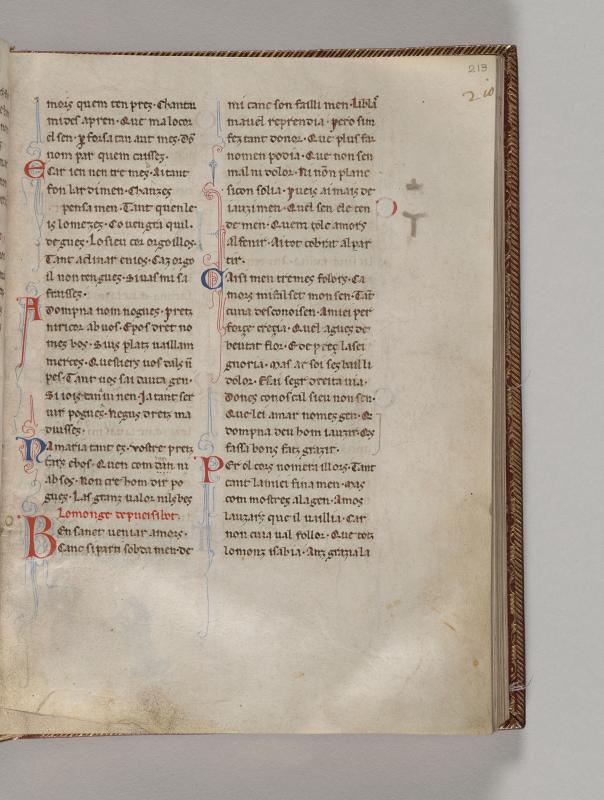 213
210
mors quem ten prez. Chantu
mi des apren. Que ma locor
el sen. per forsa tan aut mes. Don
nom par quem caisses.
Ecar ien uen tre mes. Aitant
fon lardimen. Chanzes
pensamen. Tant quen le
is lo mezes. Co uengra quil
degues. Lo sieu cor orgoillos.
Tant aclinar enios. Caz orgo
il non tengues. Si uas mi sa
fraisses.
Adompna nom nogues. pretz
ni ricor ab uos. E pos dret no
mes bos. Siuis platz uaillam
merces.
pes. Tant uos sai
Si iois
uir pogues. Negus dretz ma
diuisses.
Namaria tant es. uostre pretz
Quen com
ab sos. Non cre hom dir po
gues. Las granz ualor
Lo monge de pueisibot.
Ben sanet ueniar amors.
Canc si parti sobda men de
mi canc son failli men. Si bla
ma uel reprendia. pero sim
fez tant donor. Que plus far
nomen podia. Que non sen
mal ni dolor. Ni non planc
sicon solia. pueis ai mais de
iauzimen. Quel sen ele ten
de men. Quem tole amors
al fenir. Ai tot cobrat al par
tir.
Caisi men tremes folors. Ca
mors mi fail set mon sen. Tant
cuia desconoisen. Amiei per
forze cregia. Quel agues de
beutat flor. E de prez la sei
gnoria. Mas ar soi ses bailli
dolor. E sai segr dreita uia.
Dones conoscal sieu non sen.
Que lei amar nomes gen. E
dompna deu hom iauzir. Qes
fassa bons faiz grazir.
Per ol cors nomen illors. Tant
cant lauiei fina men. Mas
com mostres ala gen. Amos
lauzars que il uaillia. Car
non cuia ual follor. Que totz
lo monz isabia. Anz grazia la